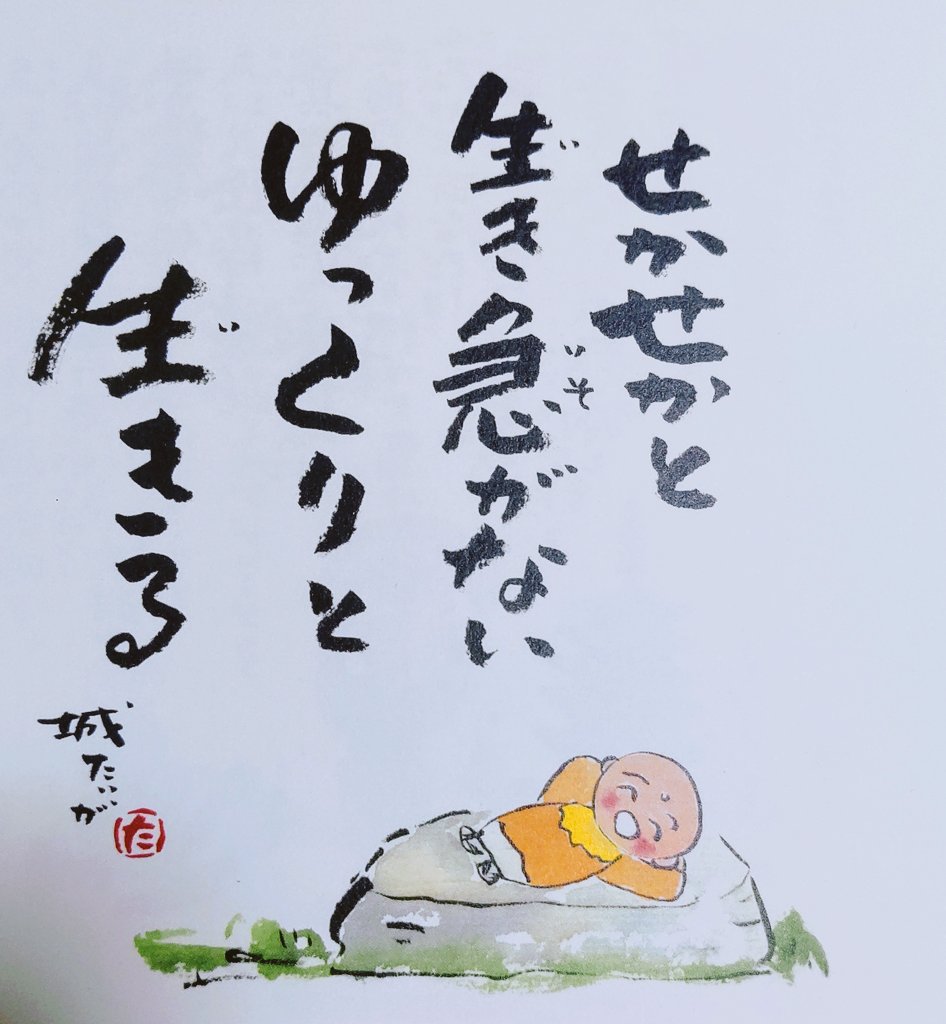 せかせかと
い いそ
生き急がない
ゆっくりと
い
生きる
城たいが
た